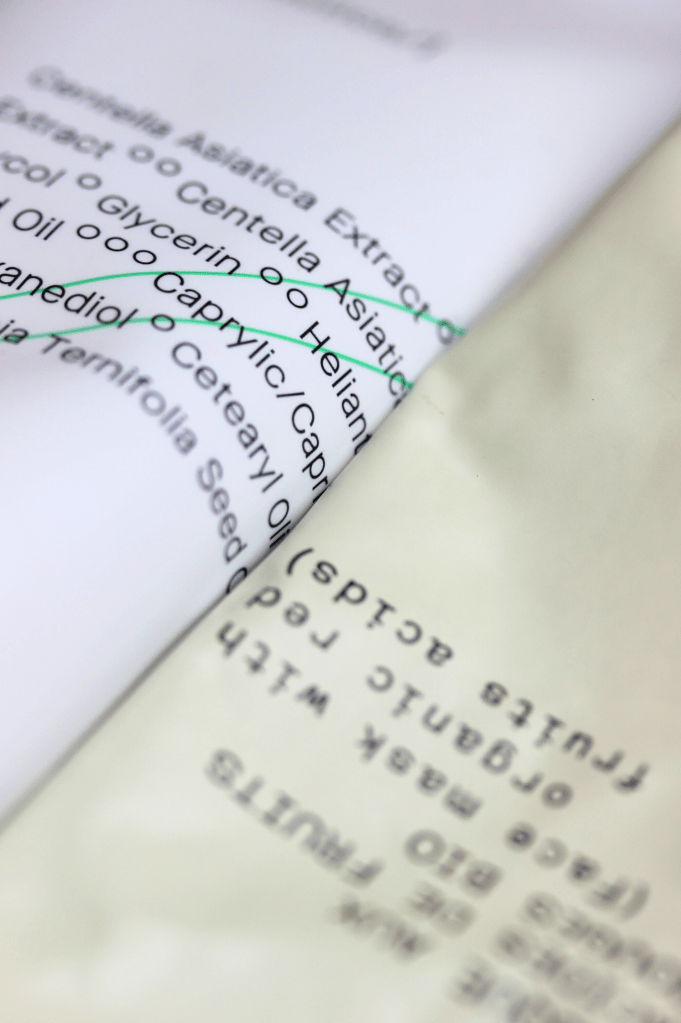 Centella Asiatica Extract o
Extract oo Centella Asiatic
ycol o Glycerin oo Heliant
d Oil ooo Caprylic/Capr
yanediol o Cetearyl Oli
ia Ternifolia Seed O
FRUITS
BIO
(face mask with
organic red
fruits acids)